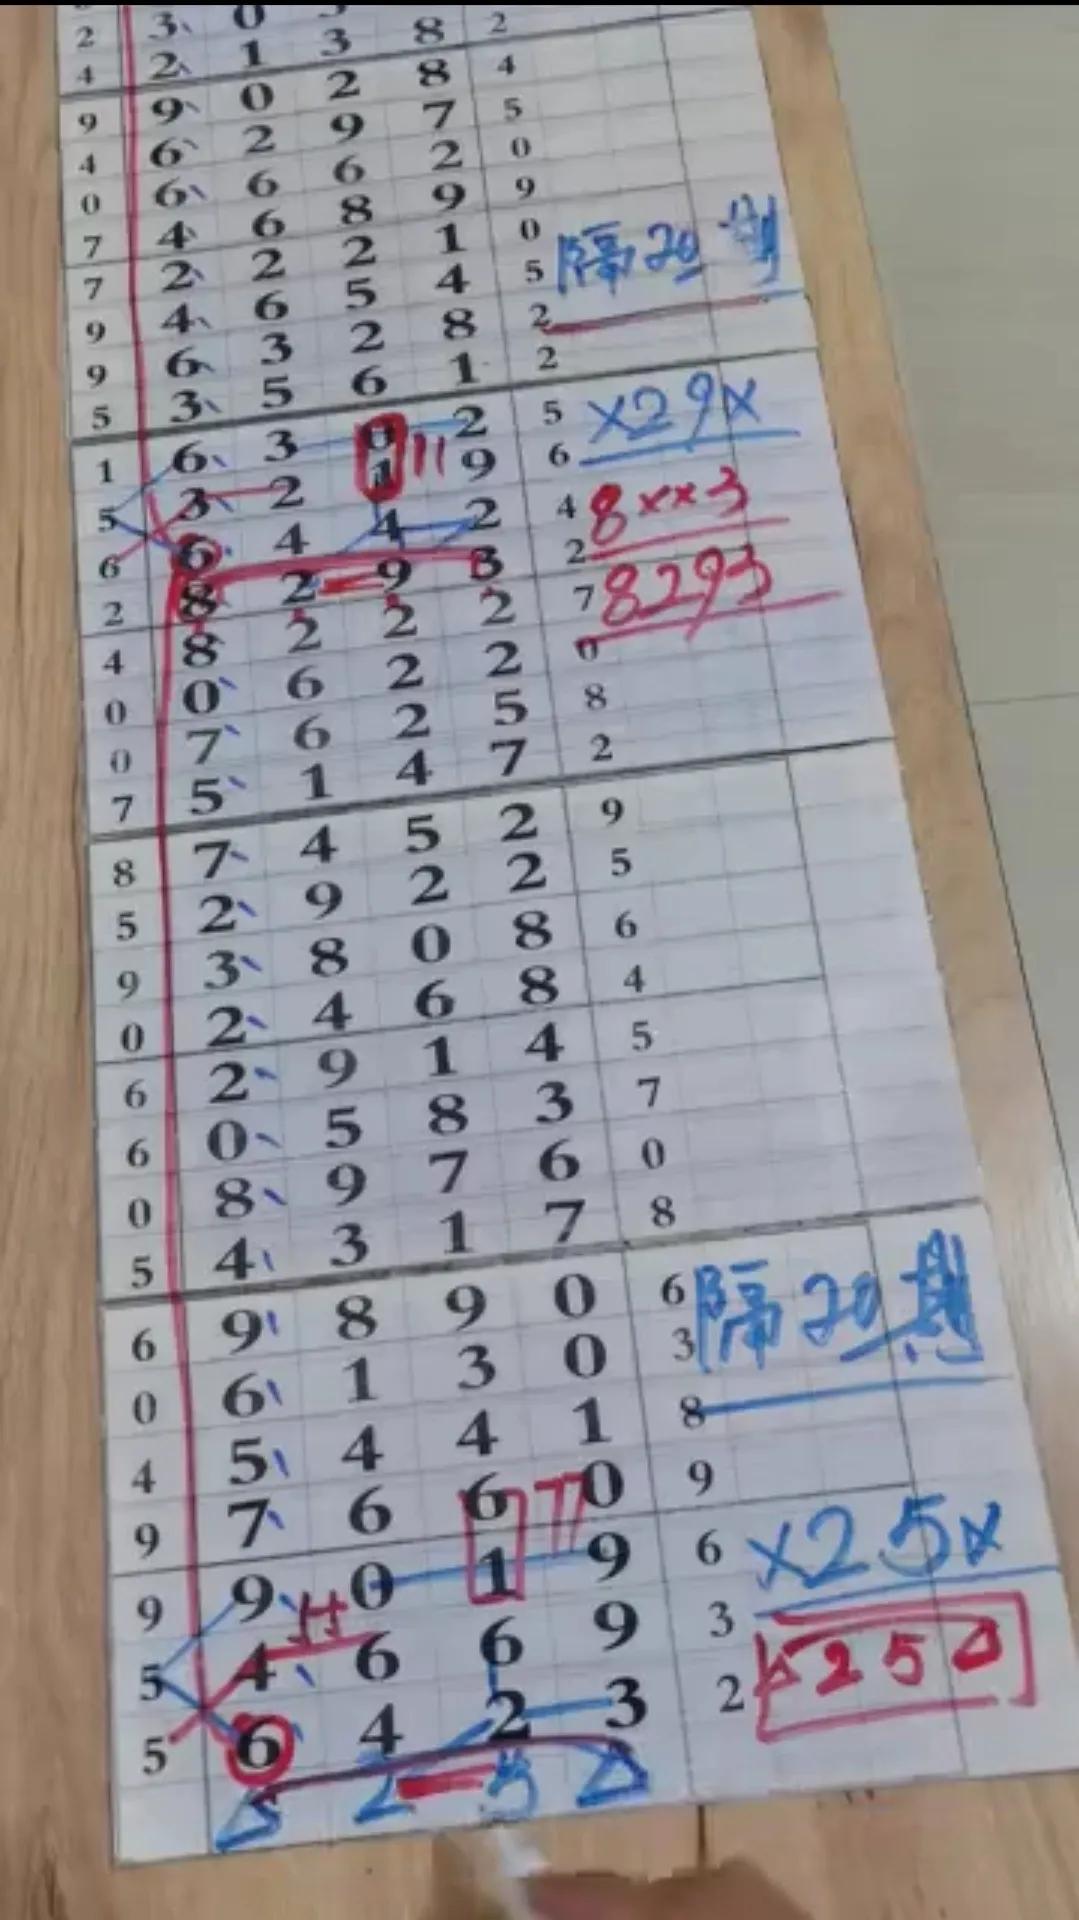 2 3 0
4 2 1 3 8 2
9 9 0 2 8 4
4 6 2 9 7 5
0 6 6 6 2 0
7 4 6 8 9 9
7 2 2 2 1 0
隔20期
9 4 6 5 4 5
9 6 3 2 8 2
5 3 5 6 1 2
1 6 3 0 2 5 ×29×
5 3 2 1 11 9 6
6 6 4 4 2 4 8××3
2 8 2 9 3 2
4 8 2 2 2 7 8293
0 0 6 2 2 0
0 7 6 2 5 8
7 5 1 4 7 2
8 7 4 5 2 9
5 2 9 2 2 5
9 3 8 0 8 6
0 2 4 6 8 4
6 2 9 1 4 5
6 0 5 8 3 7
0 8 9 7 6 0
5 4 3 1 7 8
6 9 8 9 0 6 隔20期
0 6 1 3 0 3
4 5 4 4 1 8
9 7 6 6 0 9
9 9 0 1 9 6 ×25×
5 4 6 6 9 3
5 6 4 2 3 2 25
2 5